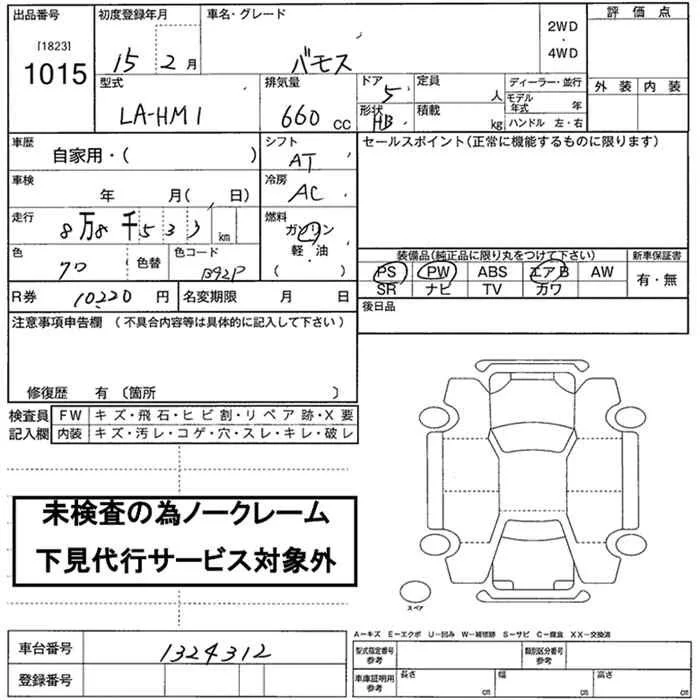 出品番号 初度登録年月 車名・グレード 2WD ・ 4WD 評価点
［1823］
1015 15 2月 バモス
外装 内装
型式 排気量 ドア 定員 ディーラー・並行
LA-HM1 660 CC 5 人 モデル年式 年
形状 HB 積載 kg ハンドル 左・右
車歴 シフト セールスポイント(正常に機能するものに限ります)
自家用・( ) AT
車検 冷房
年 月( 日) AC
走行 燃料
8万8千533 km ガソリン・軽・油
( )
色 色替 色コード 装備品(純正品に限り丸をつけて下さい) 新車保証書
クロ B92P PS PW ABS エアB AW 有・無
SR ナビ TV ガワ
R券 10,220 円 名変期限 月 日 後日品
注意事項申告欄 (不具合内容等は具体的に記入して下さい)
修復歴 有 〔箇所 〕
検査員記入欄 FW キズ・飛石・ヒビ割・リペア跡・X要
内装 キズ・汚レ・コゲ・穴・スレ・キレ・破レ
未検査の為ノークレーム
下見代行サービス対象外
スペア
A−キズ E−エクボ U−凹み W−補修跡 S−サビ C−腐食 XX−交換済
車台番号 1324312
型式指定番号 参考 類別区分番号 参考
登録番号
車庫証明用 参考 長さ cm 幅 cm 高さ cm